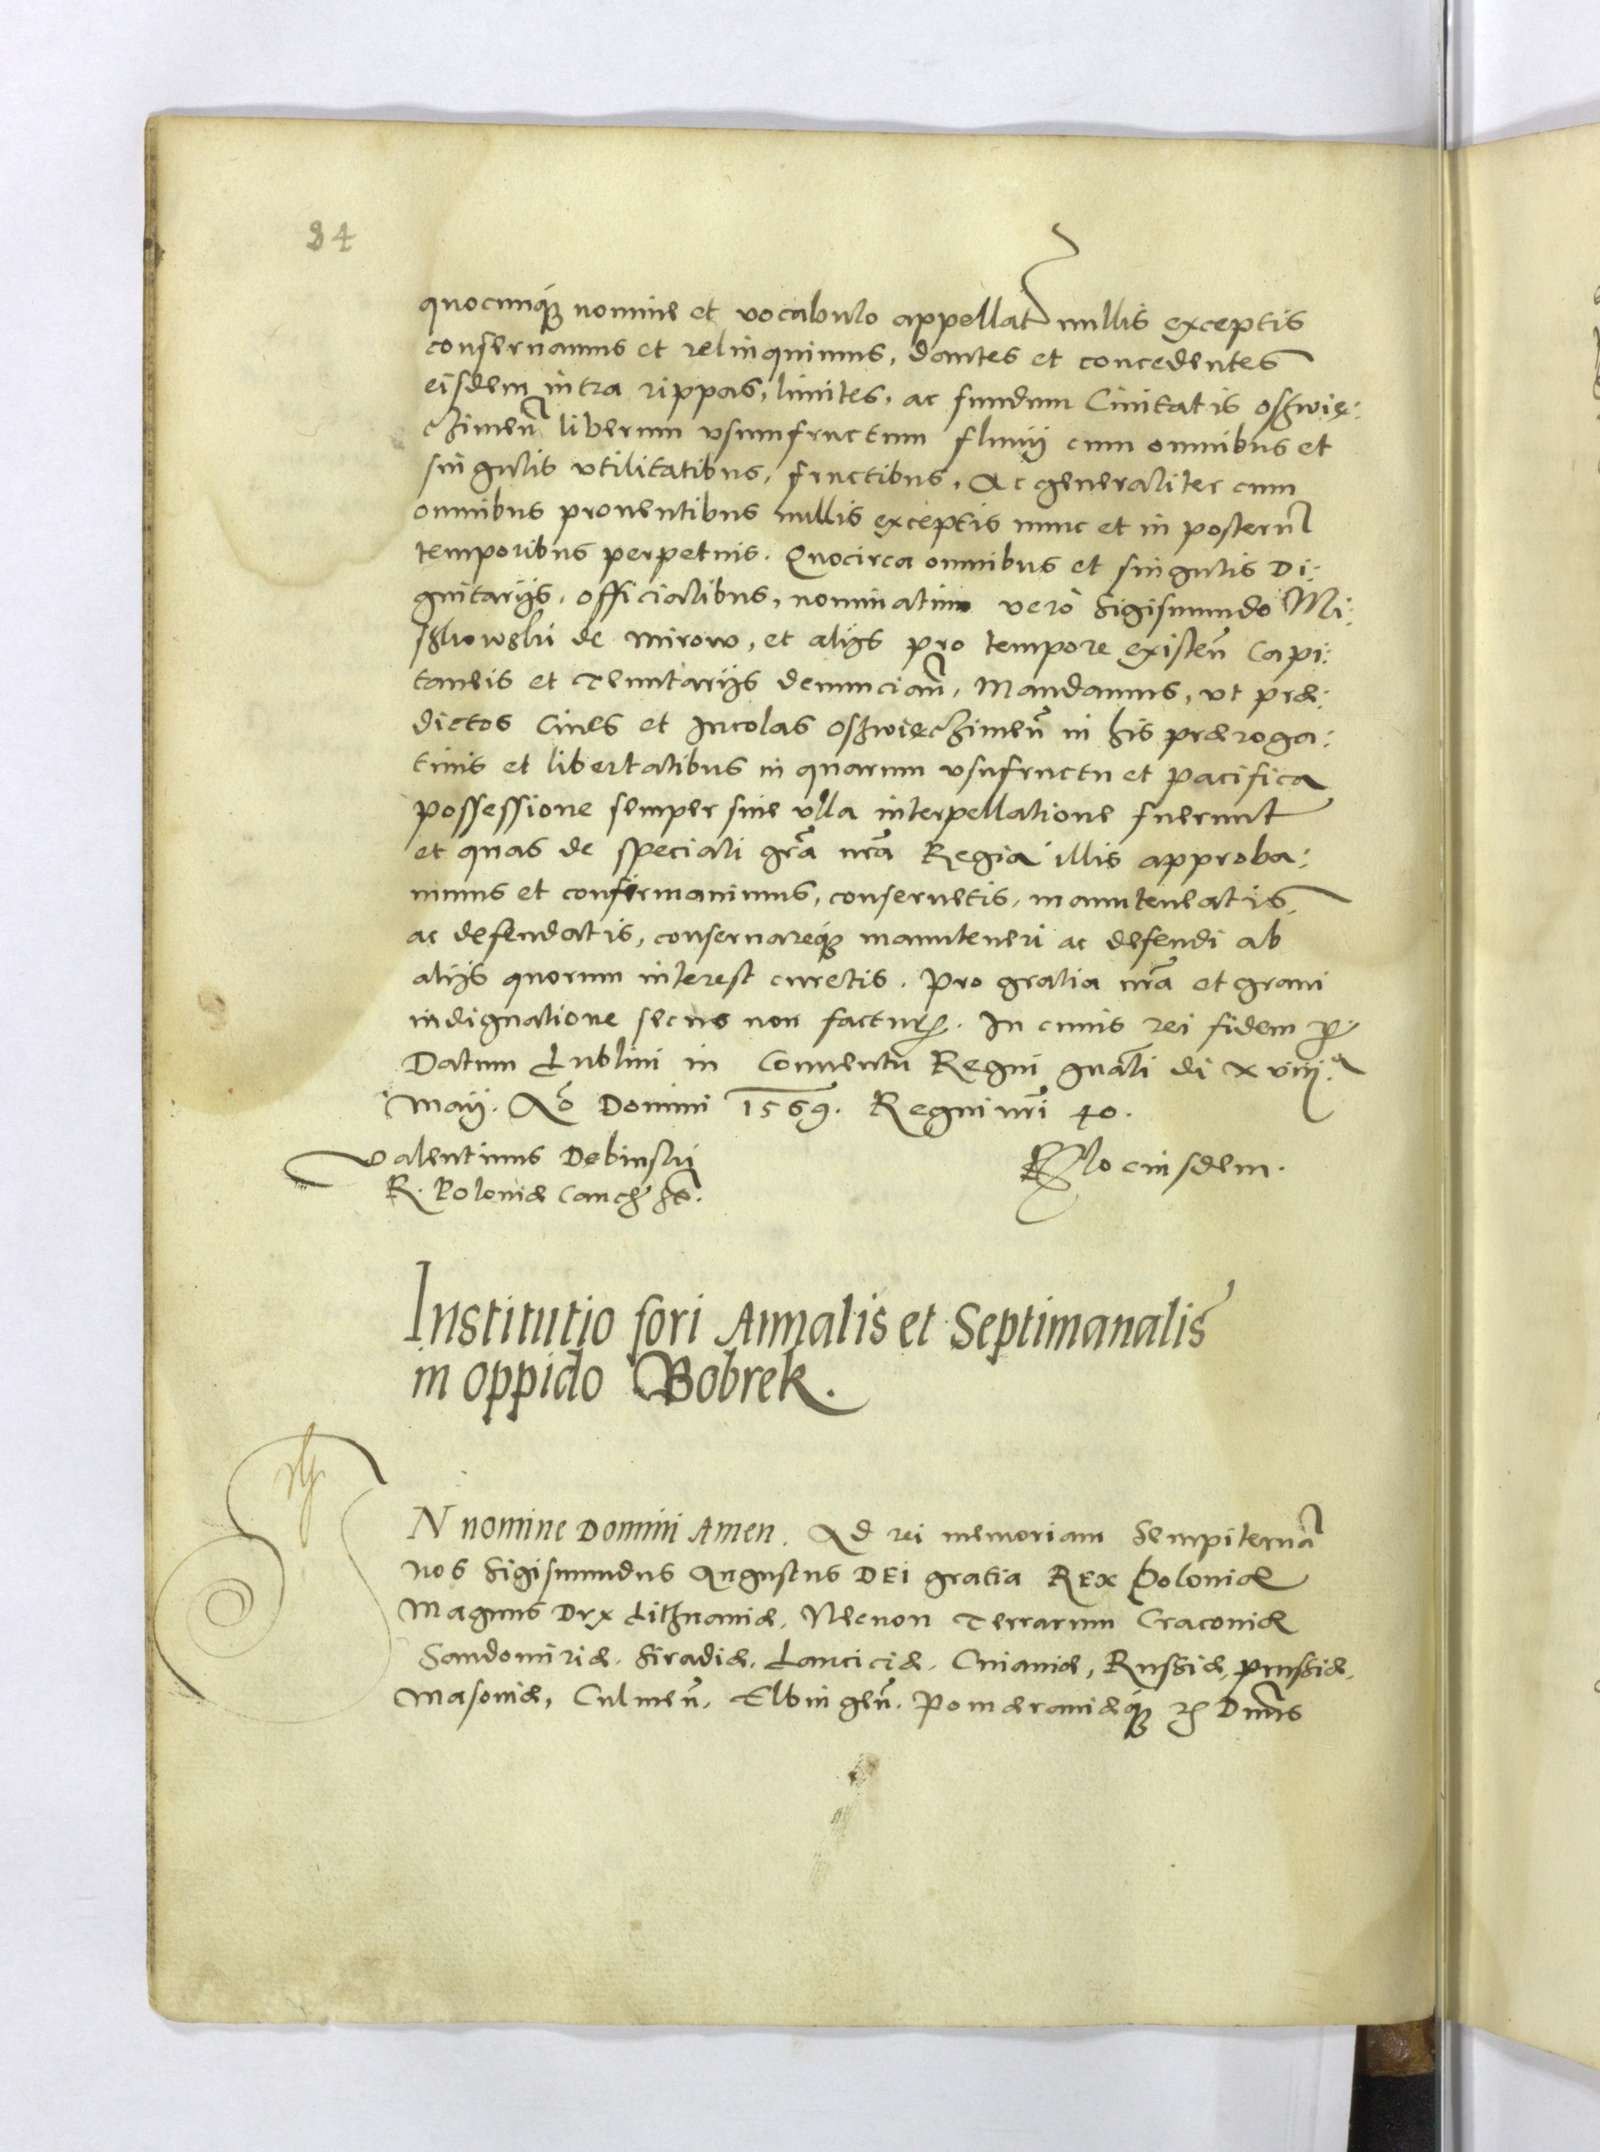 84
quocunq3 nomine et vocabulo appellat nullis exceptis
conseruamus et relinquimus, dantes et concedentes
eisdem intra rippas, limites, ac fundum Ciuitatis oszwię:
cZimeñ liberum vsumfructum fluuij cum omnibus et
singulis vtilitatibus, fructibus, Ac generaliter cum
omnibus prouentibus nullis exceptis nunc et in posterũ
temporibus perpetuis. Quocirca omnibus et singulis Di:
gnitarijs, officialibus, nominatim vero Sigismundo Mi:
szkowski de Mirow, et alijs pro tempore existeñ Capi:
taneis et Tenutarijs denunciañ, Mandamus, vt præ:
dictos Ciues et Incolas OszwięcZimeñ in his præroga:
tiuis et libertatibus in quarum vsufructu et pacifica
possessione semper sine vlla interpellatione fuerunt
et quas de speciali grã nrã Regia illis approba:
uimus et confirmauimus, conseruetis, manuteneatis,
ac defendatis, conseruareq3 manuteneri ac defendi ab
alijs quorum interest curetis. Pro gratia nrã et graui
indignatione secus non factur. In cuius rei fidem
Datum Lublini in Conuentu Regni gnali di xviij.a
Maij. Ao Domini 1569. Regni nri 40.
Valentinus Debinski
R. Poloniæ Canc
Rlo eiusdem.
Institutio fori Annalis et Septimanalis
in oppido Bobrek.
IN nomine Domini Amen. Ad rei memoriam Sempiternã
Nos Sigismundus Augustus DEI gratia REX Poloniæ
Magnus Dux Lithuaniæ, Necnon Terrarum Cracouiæ
Sandomiriæ, Siradiæ, Lanciciæ, Cuiauiæ, Russiæ, Prussiæ,
Masouiæ, Culmeñ, Elbingeñ, Pomæraniæq3 Dnus